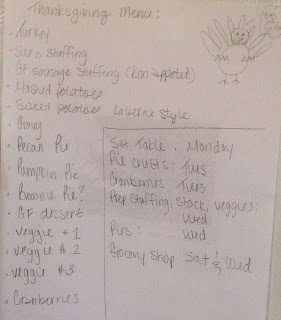 Thanksgiving Menu:
• Turkey
• Sue's stuffing
• GF sausage stuffing (bon appetit)
• Mashed potatoes
• Sweet potatoes Laverne Style
• Gravy
• Pecan Pie
• Pumpkin Pie
• Brownie Pie?
• GF dessert
• veggie #1
• veggie #2
• veggie #3
• Cranberries
Set Table: Monday
Pie crusts: Tues
Cranberries Tues
Prep stuffing, stock, veggies:
Wed
Pies: Wed
Grocery Shop Sat & Wed